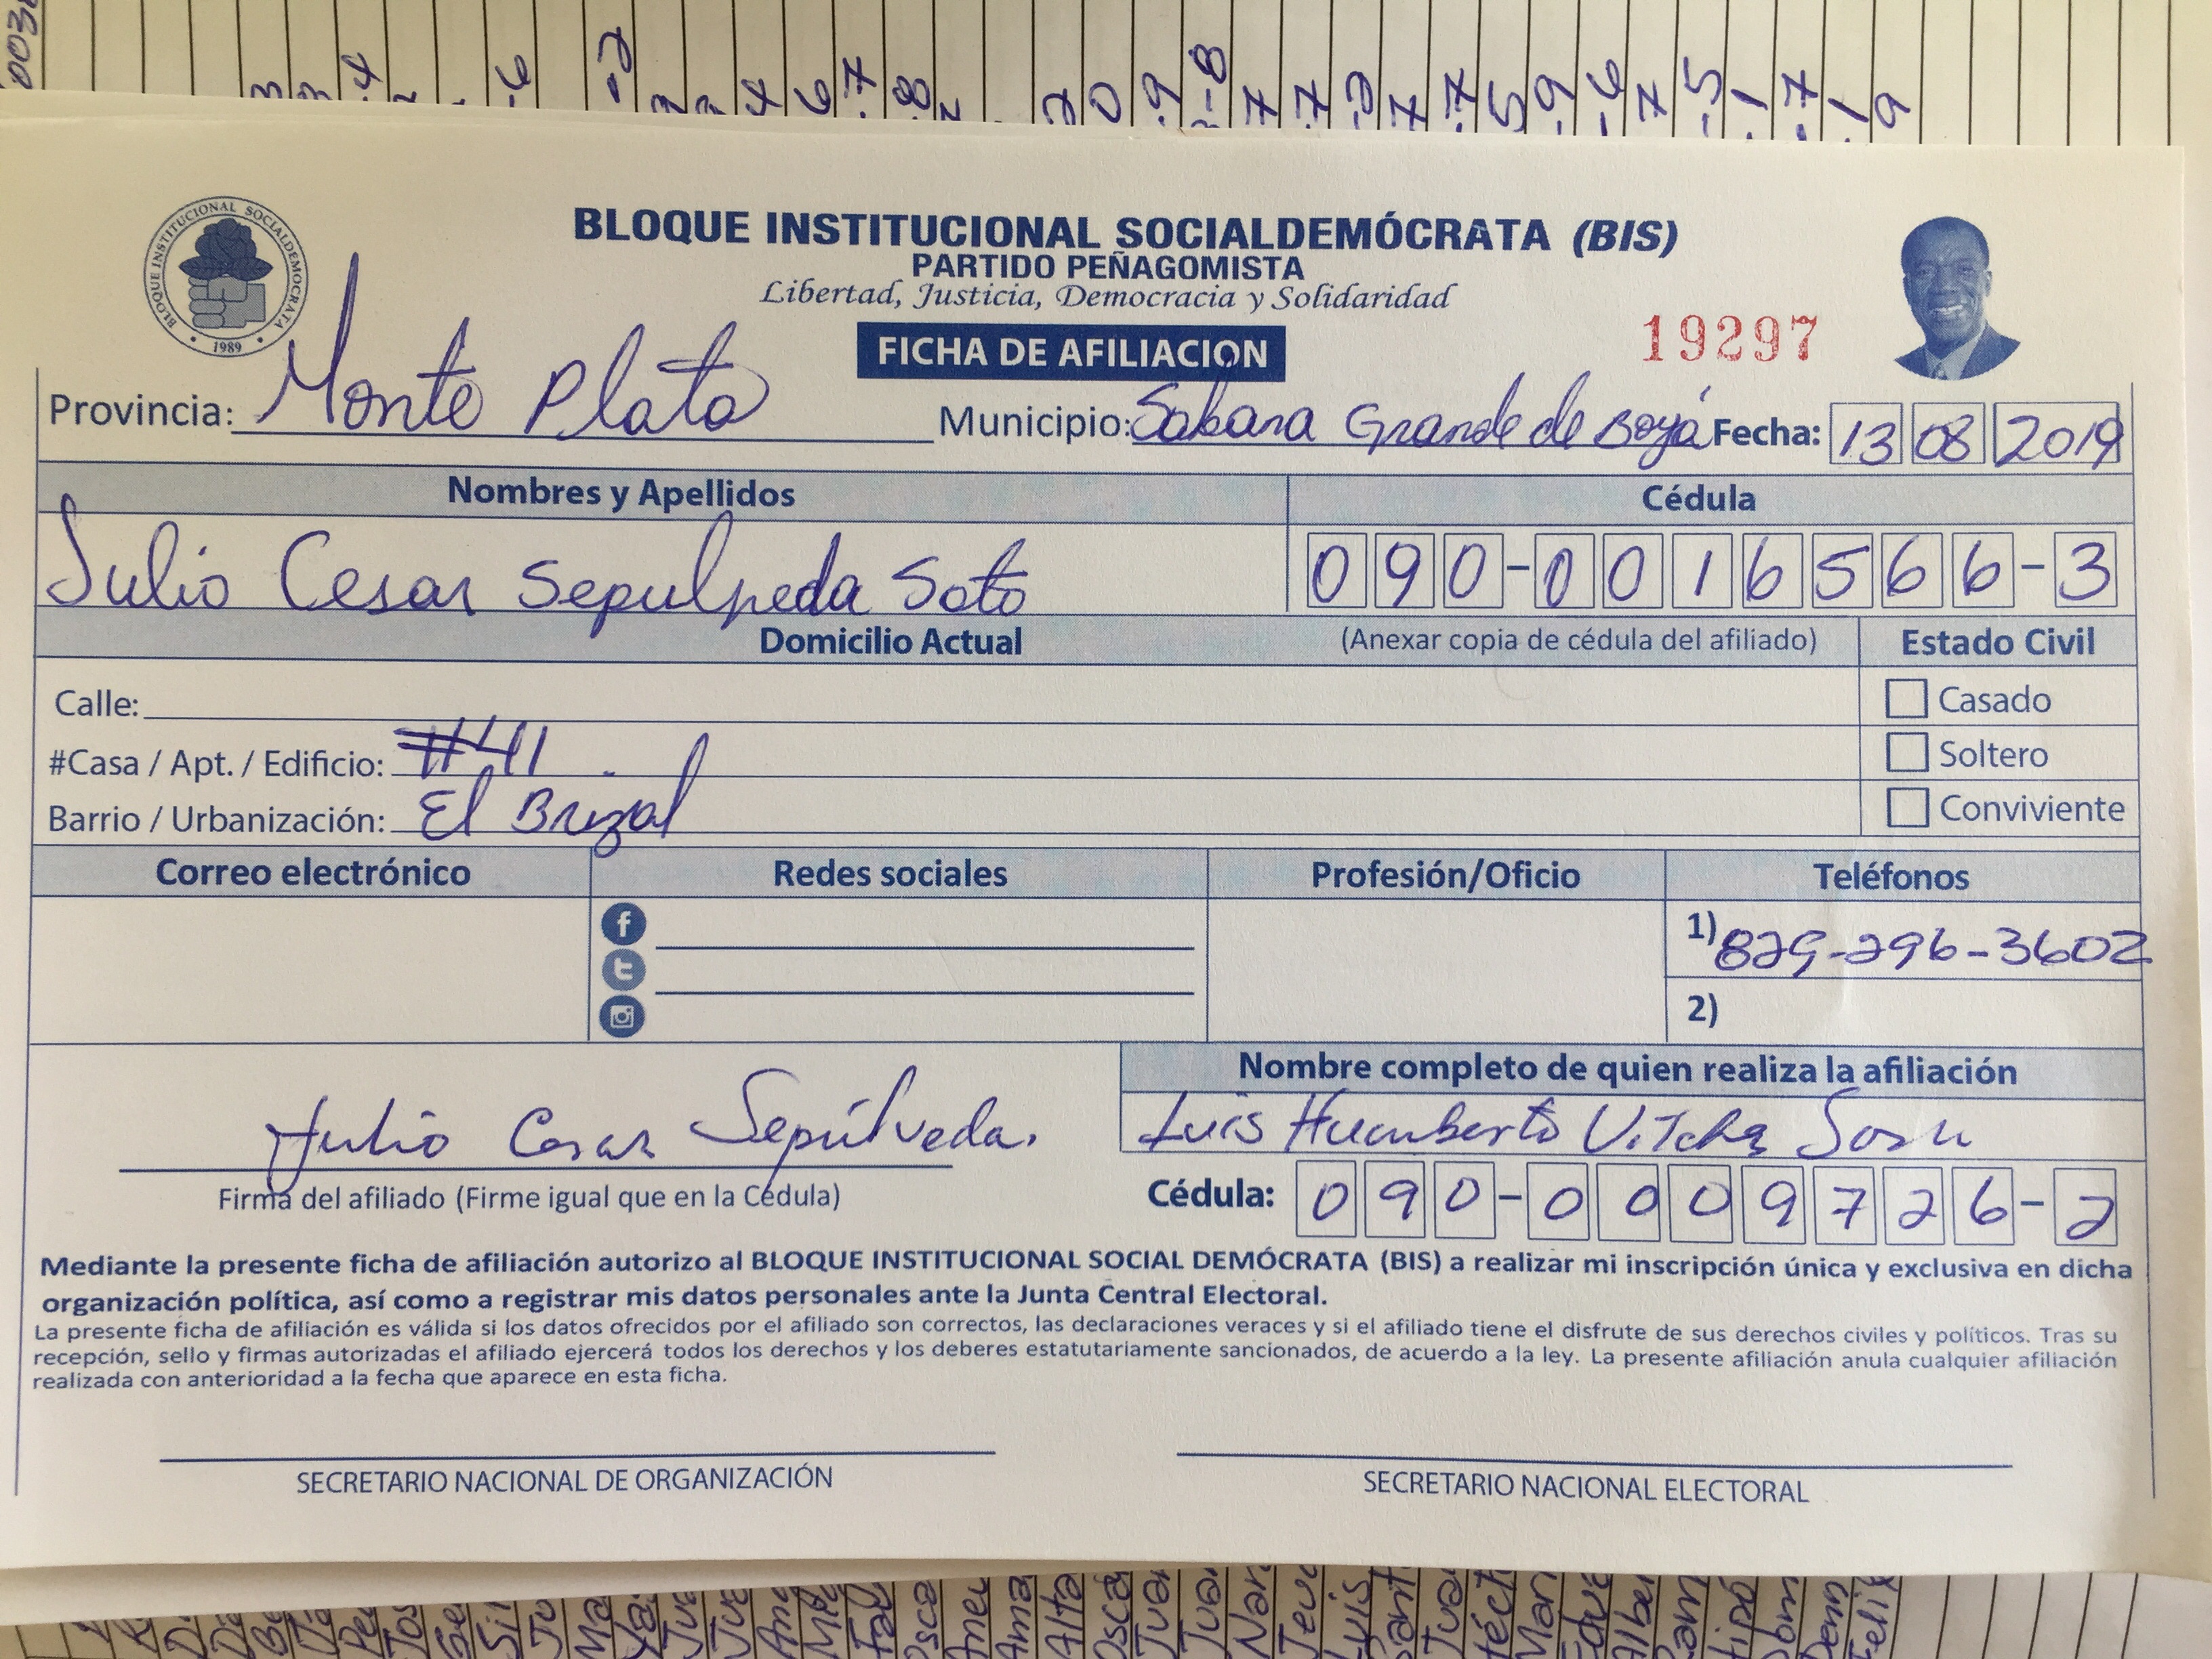 BLOQUE INSTITUCIONAL SOCIALDEMOCRATA
1989
BLOQUE INSTITUCIONAL SOCIALDEMÓCRATA (BIS)
PARTIDO PEÑAGOMISTA
Libertad, Justicia, Democracia y Solidaridad
FICHA DE AFILIACION
19297
Provincia: Monte Plata Municipio: Sabana Grande de Boyá Fecha: 13 08 2019
Nombres y Apellidos Cédula
Julio Cesar Sepulpeda Soto 090-0016566-3
Domicilio Actual (Anexar copia de cédula del afiliado) Estado Civil
Calle: Casado
#Casa / Apt. / Edificio: #41 Soltero
Barrio / Urbanización: El Brizal Conviviente
Correo electrónico Redes sociales Profesión/Oficio Teléfonos
1) 829-296-3602
2)
Nombre completo de quien realiza la afiliación
Julio Cesar Sepúlveda. Luis Humberto
Firma del afiliado (Firme igual que en la Cédula) Cédula: 090-0009726-2
Mediante la presente ficha de afiliación autorizo al BLOQUE INSTITUCIONAL SOCIAL DEMÓCRATA (BIS) a realizar mi inscripción única y exclusiva en dicha
organización política, así como a registrar mis datos personales ante la Junta Central Electoral.
La presente ficha de afiliación es válida si los datos ofrecidos por el afiliado son correctos, las declaraciones veraces y si el afiliado tiene el disfrute de sus derechos civiles y políticos. Tras su
recepción, sello y firmas autorizadas el afiliado ejercerá todos los derechos y los deberes estatutariamente sancionados, de acuerdo a la ley. La presente afiliación anula cualquier afiliación
realizada con anterioridad a la fecha que aparece en esta ficha.
SECRETARIO NACIONAL DE ORGANIZACIÓN SECRETARIO NACIONAL ELECTORAL